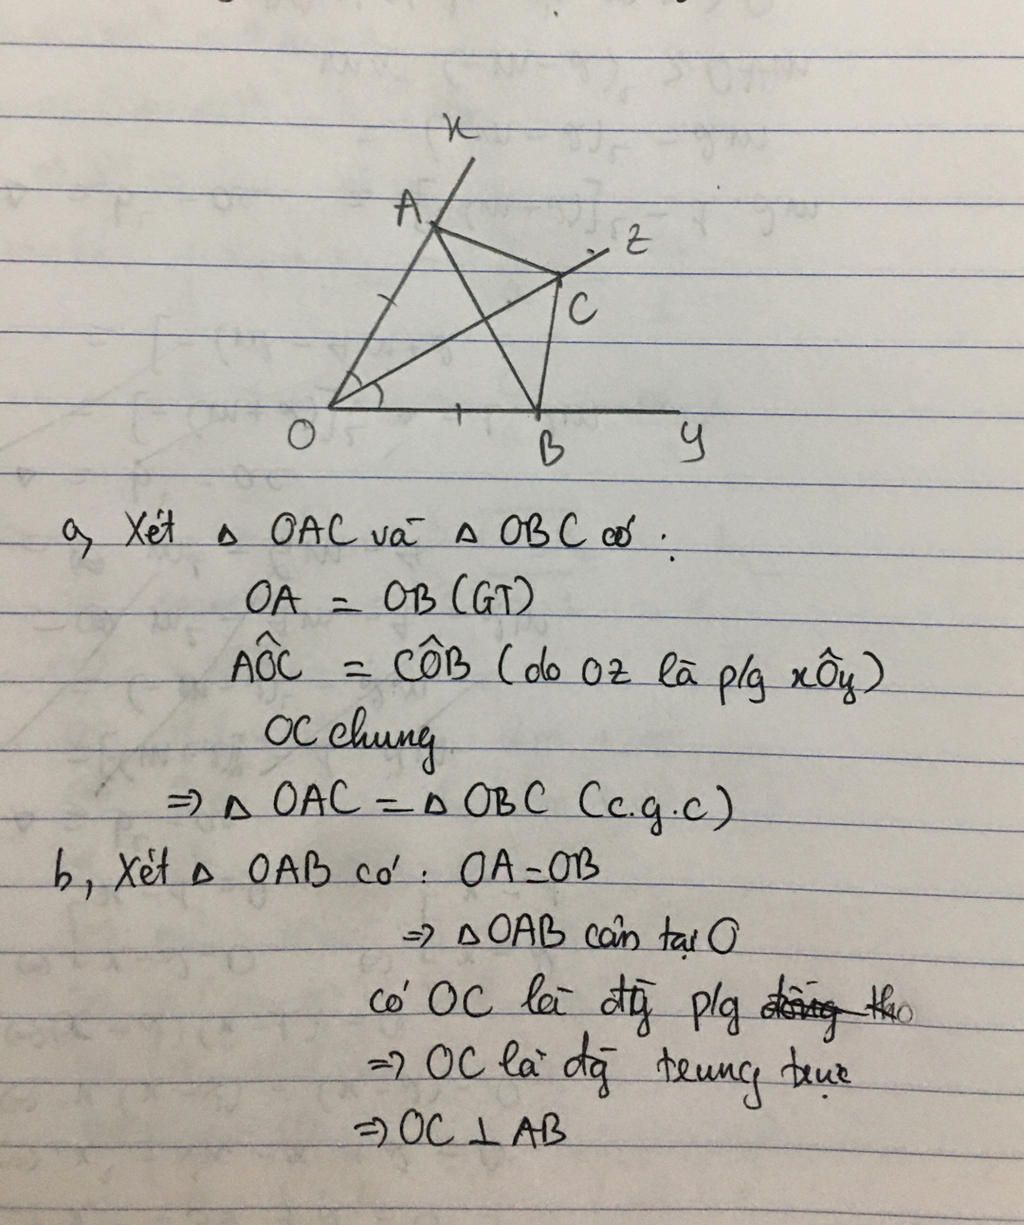 x
A
z
C
O
B
y
a, Xét △ OAC và △ OBC có :
OA = OB (GT)
AÔC = CÔB (do Oz là p/g xÔy)
OC chung
=> △ OAC = △ OBC (c.g.c)
b, Xét △ OAB có : OA = OB
=> △ OAB cân tại O
có OC là đg̀ p/g đồng tho
=> OC là đg̀ trung trực
=> OC ⊥ AB